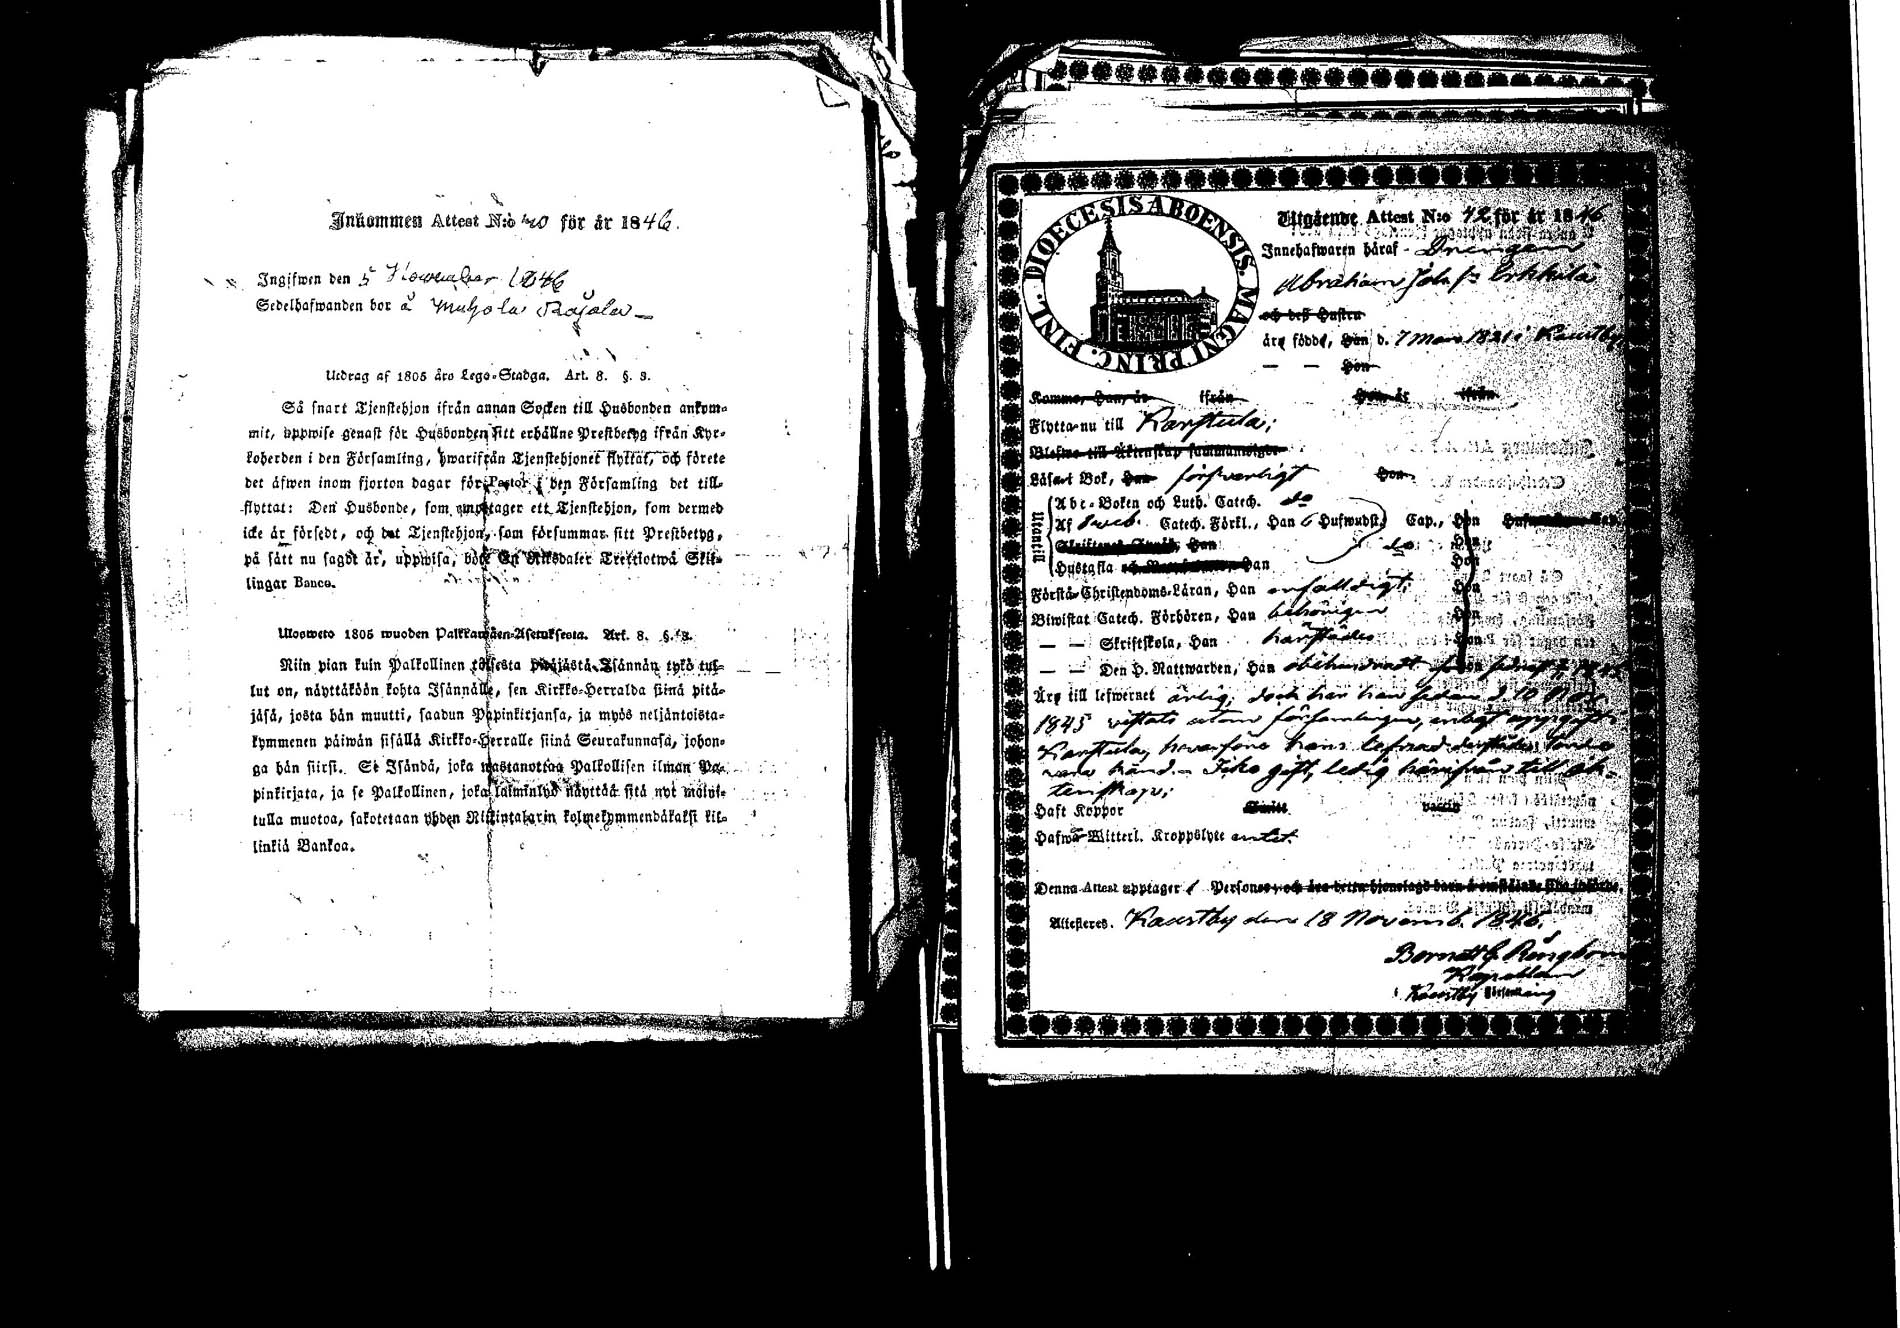 Inkommen Attest N:o 40 för år 1846.
Ingifwen den 5 November 1846
Sedelhafwanden bor å Muhola Räjälä
Utdrag af 1805 års Lego-Stadga. Art. 8. §. 3.
Så snart Tjenstehjon ifrån annan Socken till Husbonden ankom-
mit, uppwise genast för Husbonden sitt erhållne Prestbetyg ifrån Kyr-
koherden i den Församling, hwarifrån Tjenstehjonet flyttat, och förete
det äfwen inom fjorton dagar för Pastor i den Församling det till-
flyttat: Den Husbonde, som emottager ett Tjenstehjon, som dermed
icke är försedt, och det Tjenstehjon, som försummar sitt Prestbetyg,
på sätt nu sagdt är, uppwisa, böte En Riksdaler Trettiotwå Skil-
lingar Banco.
Uloswete 1805 wuoden Palkkawäen-Asetuksesta. Art. 8. §. 3.
Niin pian kuin Palkollinen toisesta pitäjästä Isännän tykö tul-
lut on, näyttäköön kohta Isännälle, sen Kirkko-Herralda siinä pitä-
jäsä, josta hän muutti, saadun Papinkirjansa, ja myös neljäntoista-
kymmenen päiwän sisällä Kirkko-Herralle siinä Seurakunnasa, johon-
ga hän siirsi. Se Isändä, joka wastanottaa Palkollisen ilman Pa-
pinkirjata, ja se Palkollinen, joka laiminlyö näyttää sitä nyt mainit-
tulla muotoa, sakotetaan yhden Riikintalarin kolmekymmendäkaksi kil-
linkiä Bankoa.
FINL. DIOECESIS ABOENSIS. MAGNI PRINC.
Utgående Attest N:o 42 för år 1846
Innehafwaren häraf - Drengen
Abraham Joh. s. Erkkilä
och deß Hustru
äro födde, Han d. 7 Mars 1821 i Kaustby
— — Hon
Komne, Han, år ifrån Hon år ifrån
Flytta nu till Karstula;
Blefwo till Äktenskap sammanwigde
Läsa i Bok, Han försvarligt Hon
Utantill
Abc-Boken och Luth. Catech. do
Af Sweb. Catech. Förkl., Han 6 Hufwudst. Cap., Hon
Hon
Hustafla Han Hon
Förstå Christendoms-Läran, Han enfaldigt; Hon
Biwistat Catech. Förhören, Han behörigen Hon
— — Skriftskola, Han härstädes Hon
— — Den H. Nattwarden, Han obehindradt
Äro till lefwernet ärlig; doch har han sedan d. 10 Nov.
1845 vistats utom församlingen, enligt uppgift i
Karstula, hvarföre hans lefnad derstädes torde
vara känd. - Icke gift, ledig härifrån till äk-
tenskap;
Haft Koppor vaccin
Hafwa Witterl. Kroppslyte intet.
Denna Attest upptager 1 Person
Attesteras. Kaustby den 18 Novemb. 1846.
Kapellan
i Kaustby Församling